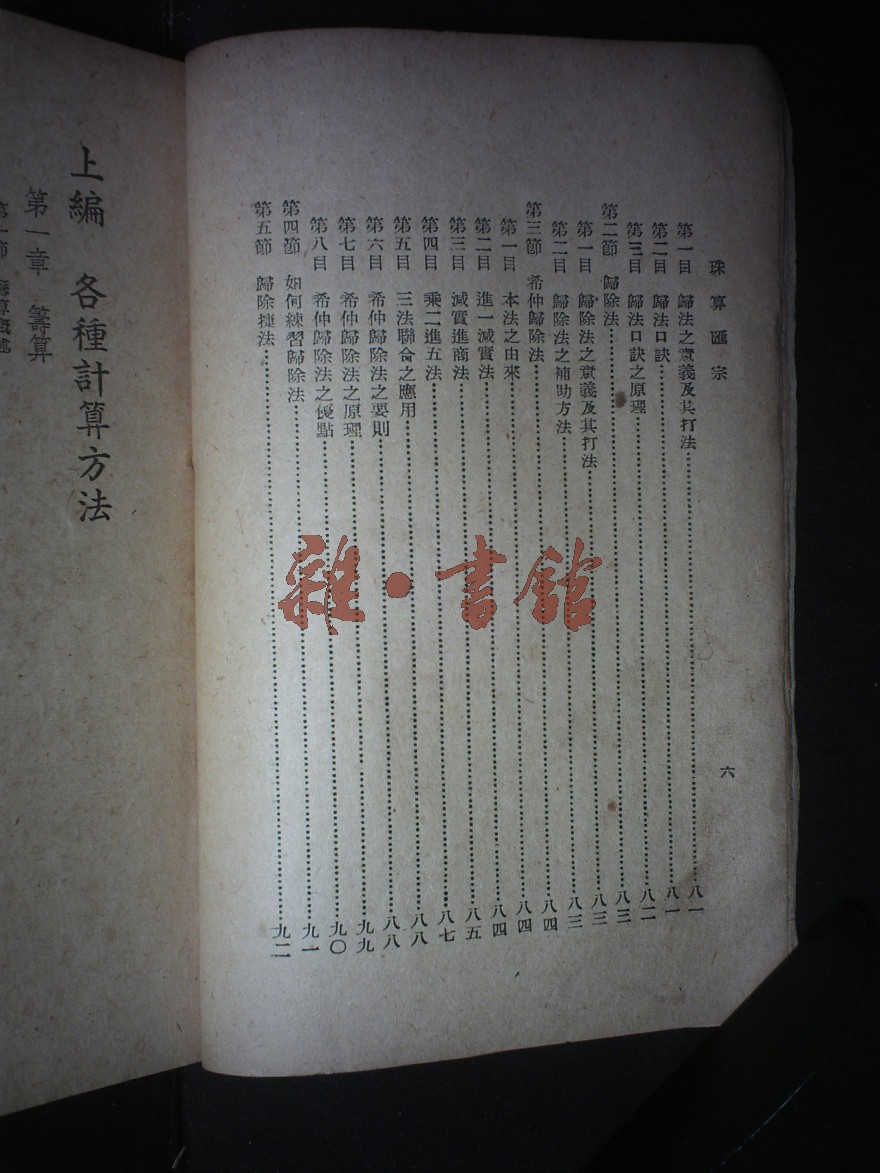 珠算匯宗
六
第一目 歸法之意義及其打法……八一
第二目 歸法口訣……八一
第三目 歸法口訣之原理……八二
第二節 歸除法……八三
第一目 歸除法之意義及其打法……八三
第二目 歸除法之補助方法……八三
第三節 希仲歸除法……八四
第一目 本法之由來……八四
第二目 進一減實法……八四
第三目 減實進商法……八五
第四目 乘二進五法……八七
第五目 三法聯合之應用……八八
第六目 希仲歸除法之要則……八八
第七目 希仲歸除法之原理……九九
第八目 希仲歸除法之優點……九〇
第四節 如何練習歸除法……九一
第五節 歸除捷法……九二
雜·書館
上編 各種計算方法
第一章 籌算
第一節 籌算概述